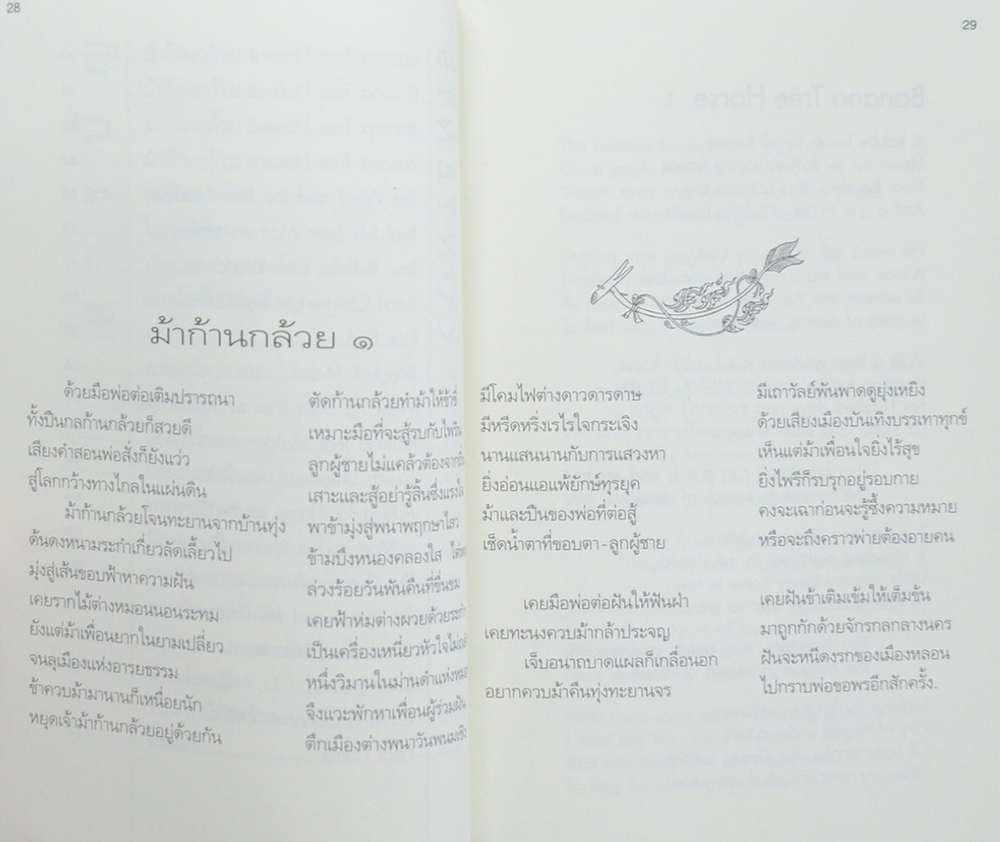 28
ม้าก้านกล้วย ๑
ด้วยมือพ่อต่อเติมปรารถนา ตัดก้านกล้วยทำม้าให้ข้าขี่
ทั้งปืนกลก้านกล้วยก็สวยดี เหมาะมือที่จะสู้รบกับไพรี
เสียงคำสอนพ่อสั่งก็ยังแว่ว ลูกผู้ชายไม่แคล้วต้อง
สู่โลกกว้างทางไกลในแผ่นดิน เสาะและสู้อย่ารู้สิ้นซึ่งแรง
ม้าก้านกล้วยโจนทะยานจากบ้านทุ่ง พาข้ามุ่งสู่พนาพฤกษาไสว
ด้นดงหนามระกำเกี่ยวลัดเลี้ยวไป ข้ามบึงหนองคลองใส
มุ่งสู่เส้นขอบฟ้าหาความฝัน ล่วงร้อยวันพันคืนที่ขื่นขม
เคยรากไม้ต่างหมอนนอนระทม เคยฟ้าห่มต่างผวยด้วย
ยังแต่ม้าเพื่อนยากในยามเปลี่ยว เป็นเครื่องเหนี่ยวหัวใจ
จนลุเมืองแห่งอารยธรรม หนึ่งวิมานในม่านดำแห่ง
ข้าควบม้ามานานก็เหนื่อยนัก จึงแวะพักหาเพื่อนผู้ร่วมฝัน
หยุดเจ้าม้าก้านกล้วยอยู่ด้วยกัน ตึกเมืองต่างพนาวันพนมเชิง
29
มีโคมไฟต่างดาวดารดาษ มีเถาวัลย์พันพาดดูยุ่งเหยิง
มีหรีดหริ่งเรไรใจกระเจิง ด้วยเสียงเมืองบันเทิงบรรเทาทุกข์
นานแสนนานกับการแสวงหา เห็นแต่ม้าเพื่อนใจยิ่งไร้สุข
ยิ่งอ่อนแอแพ้ยักษ์ทุรยุค ยิ่งไพรีก็รบรุกอยู่รอบกาย
ม้าและปืนของพ่อที่ต่อสู้ คงจะเฉาก่อนจะรู้ซึ้งความหมาย
เช็ดน้ำตาที่ขอบตา - ลูกผู้ชาย หรือจะถึงคราวพ่ายต้องอายคน
เคยมือพ่อต่อฝันให้ฟันฝ่า เคยฝันข้าเติมเข้มให้เต็มข้น
เคยทะนงควบม้ากล้าประจญ มาถูกกักด้วยจักรกลกลางนคร
เจ็บอนาถบาดแผลก็เกลื่อนอก ฝันจะหนีดงรกของเมืองหลอน
อยากควบม้าคืนทุ่งทะยานจร ไปกราบพ่อขอพรอีกสักครั้ง.